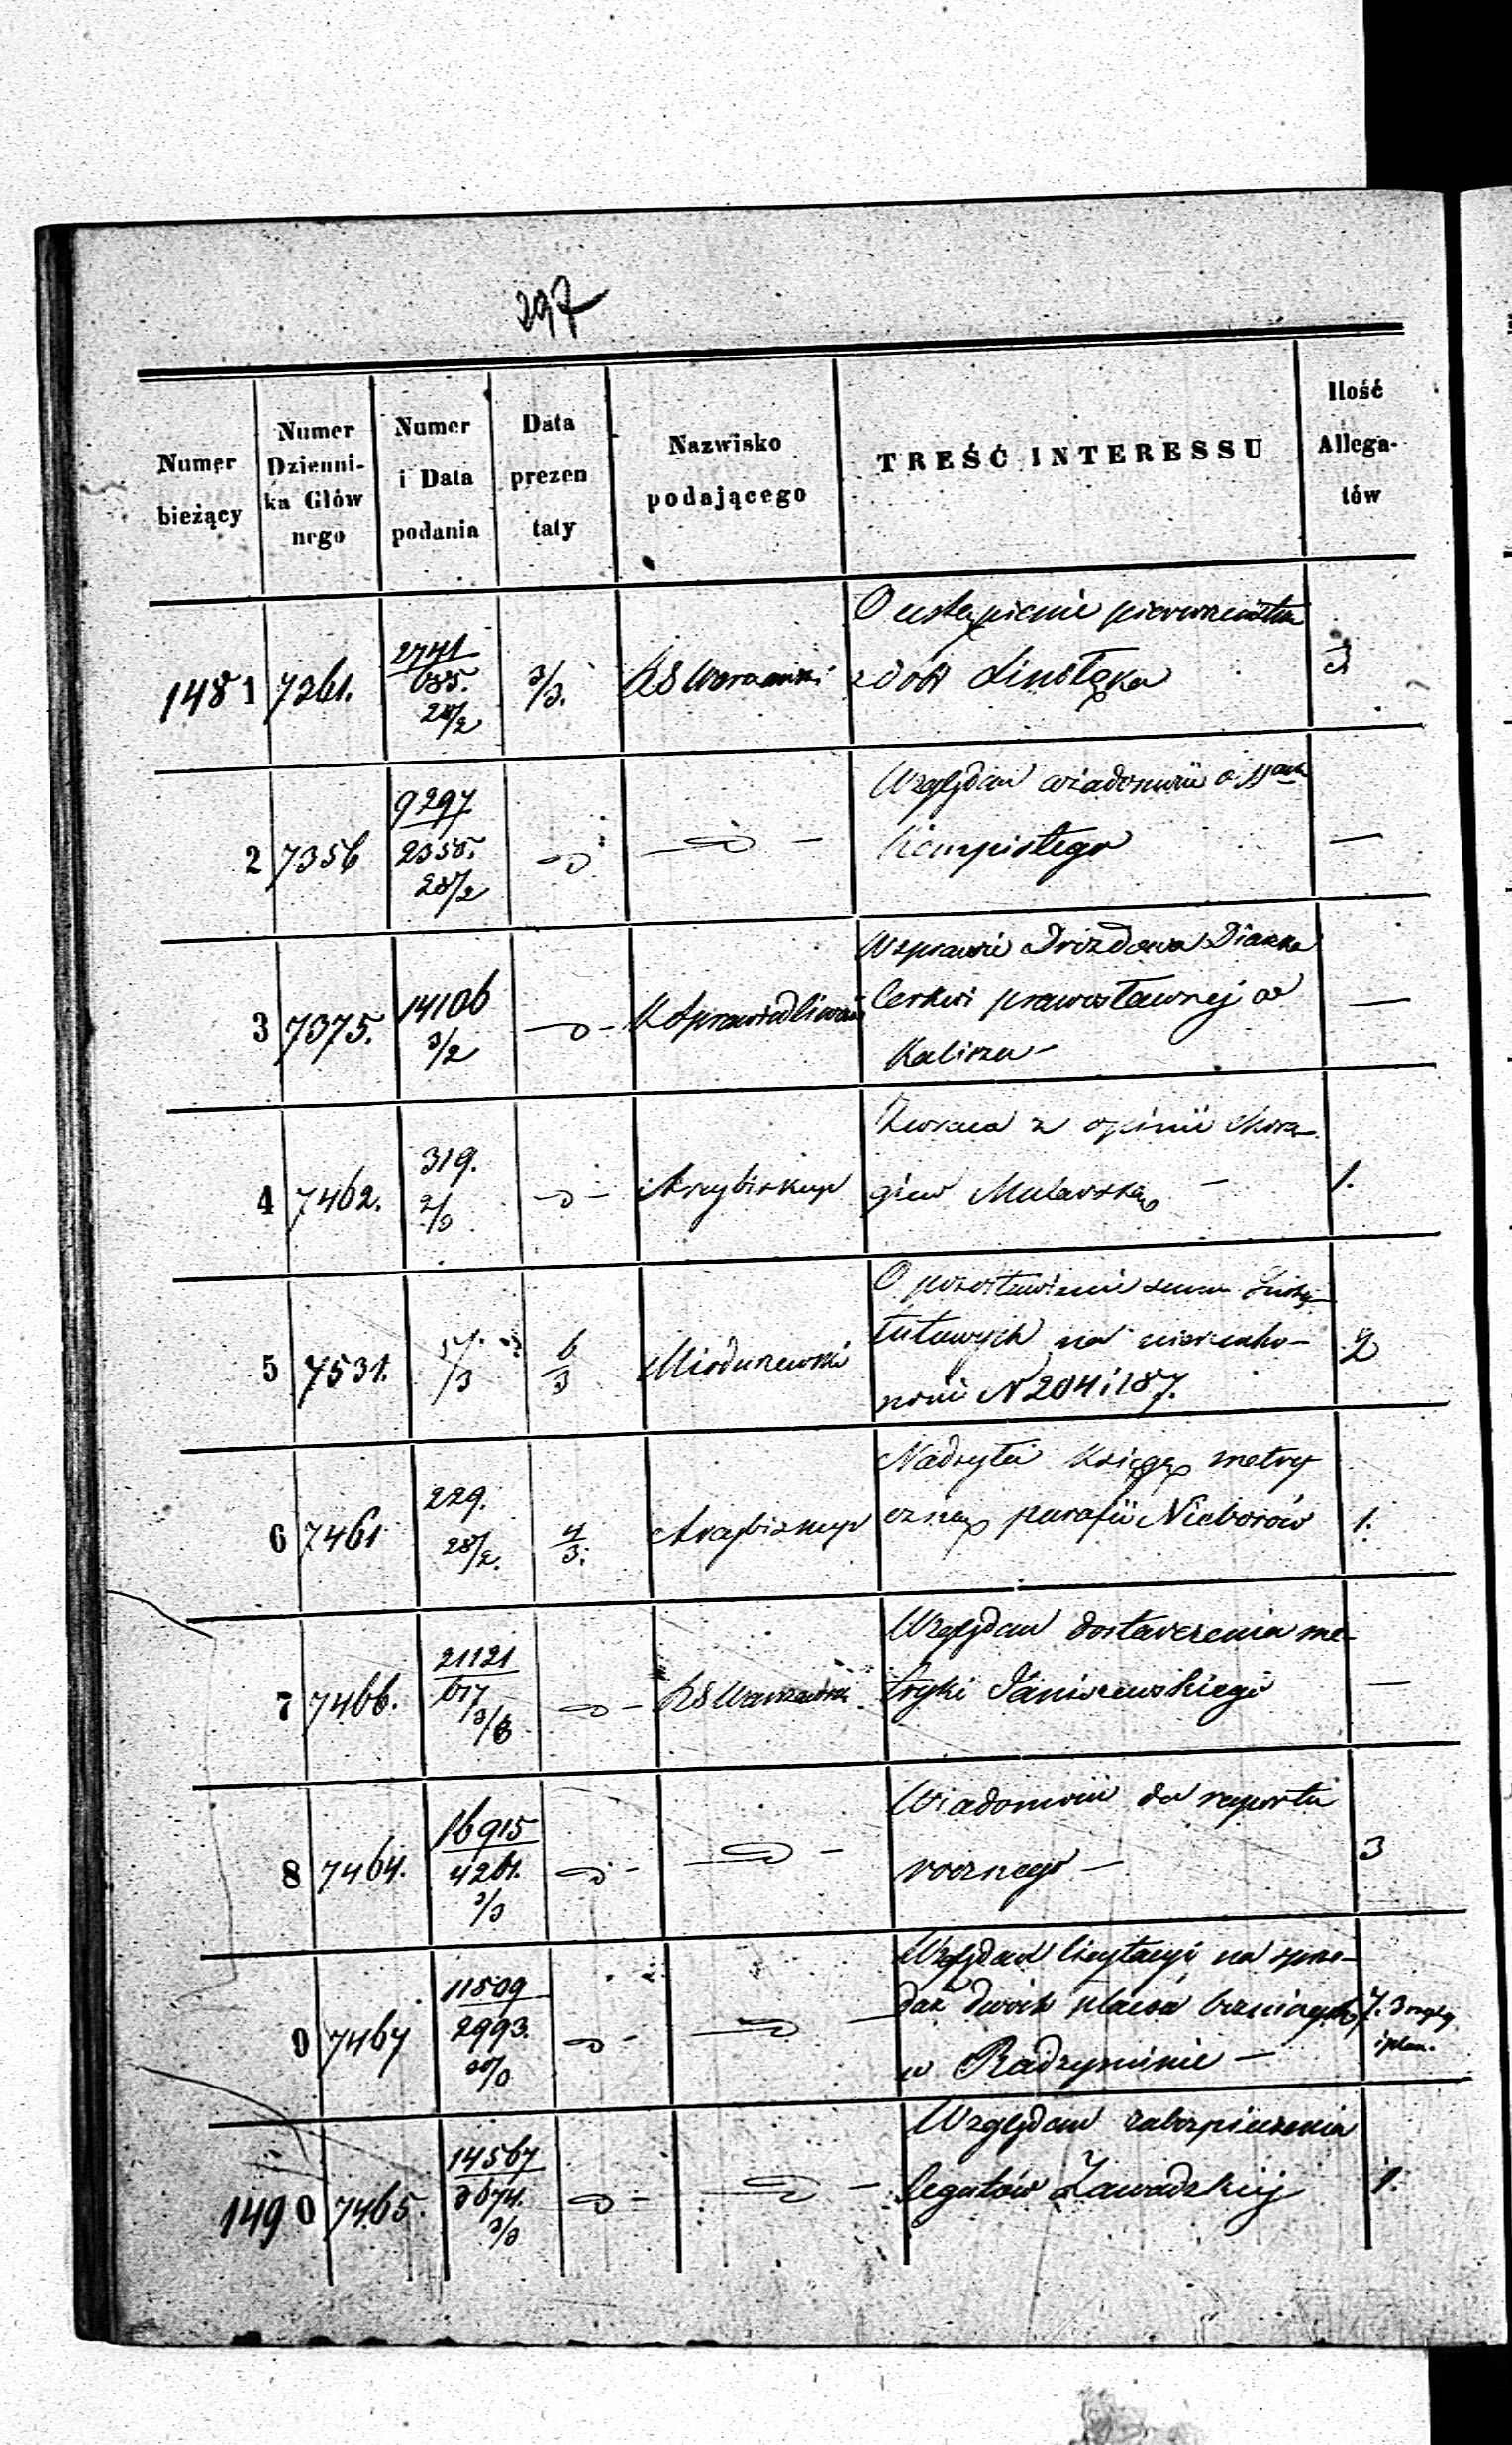 297
Numer bieżący
Numer Dzienni-ka Głównego
Numer i Data podania
Data prezentaty
Nazwisko podającego
TREŚĆ INTERESSU
Ilość Allega-tów
1481 7261. 2771 685. 28/2 3/3. RS Warszawski O ustąpienie pierwszeństwa
z dóbr 3
2 7356 9297 2358. 28/2 Względem wiadomości o
Kempistego —
3 7375. 14106 3/2 K Sprawiedliwości W sprawie Drozdowa Diaka
Cerkwi prawosławnej w
Kaliszu — —
4 7462. 319. 2/3 Arcybiskup Zwraca z opinii
Mularską — 1.
5 7531. 5/3 6/3 Mioduszewski O pozostawienie summ Insty-
tutowych na nierucho-
mości N 204 i 187. 2
6 7461 229. 28/2. 4/3. Arcybiskup Nadsyła księgę metry
czną parafii Nieborów 1.
7 7466. 21121 617 3/3 RS Warszawski Względem dostarczenia me-
tryki Janiszewskiego —
8 7464. 16915 4261. 3/3 Wiadomości do raportu
rocznego — 3
9 7467 11509 2993. Względem licytacyi na sprze-
daż dwóch placów
w Radzyminie — 7.
i plan.
1490 7465. 14567 3674. 3/3 Względem zabezpieczenia
legatów Zawadzkiej 1.